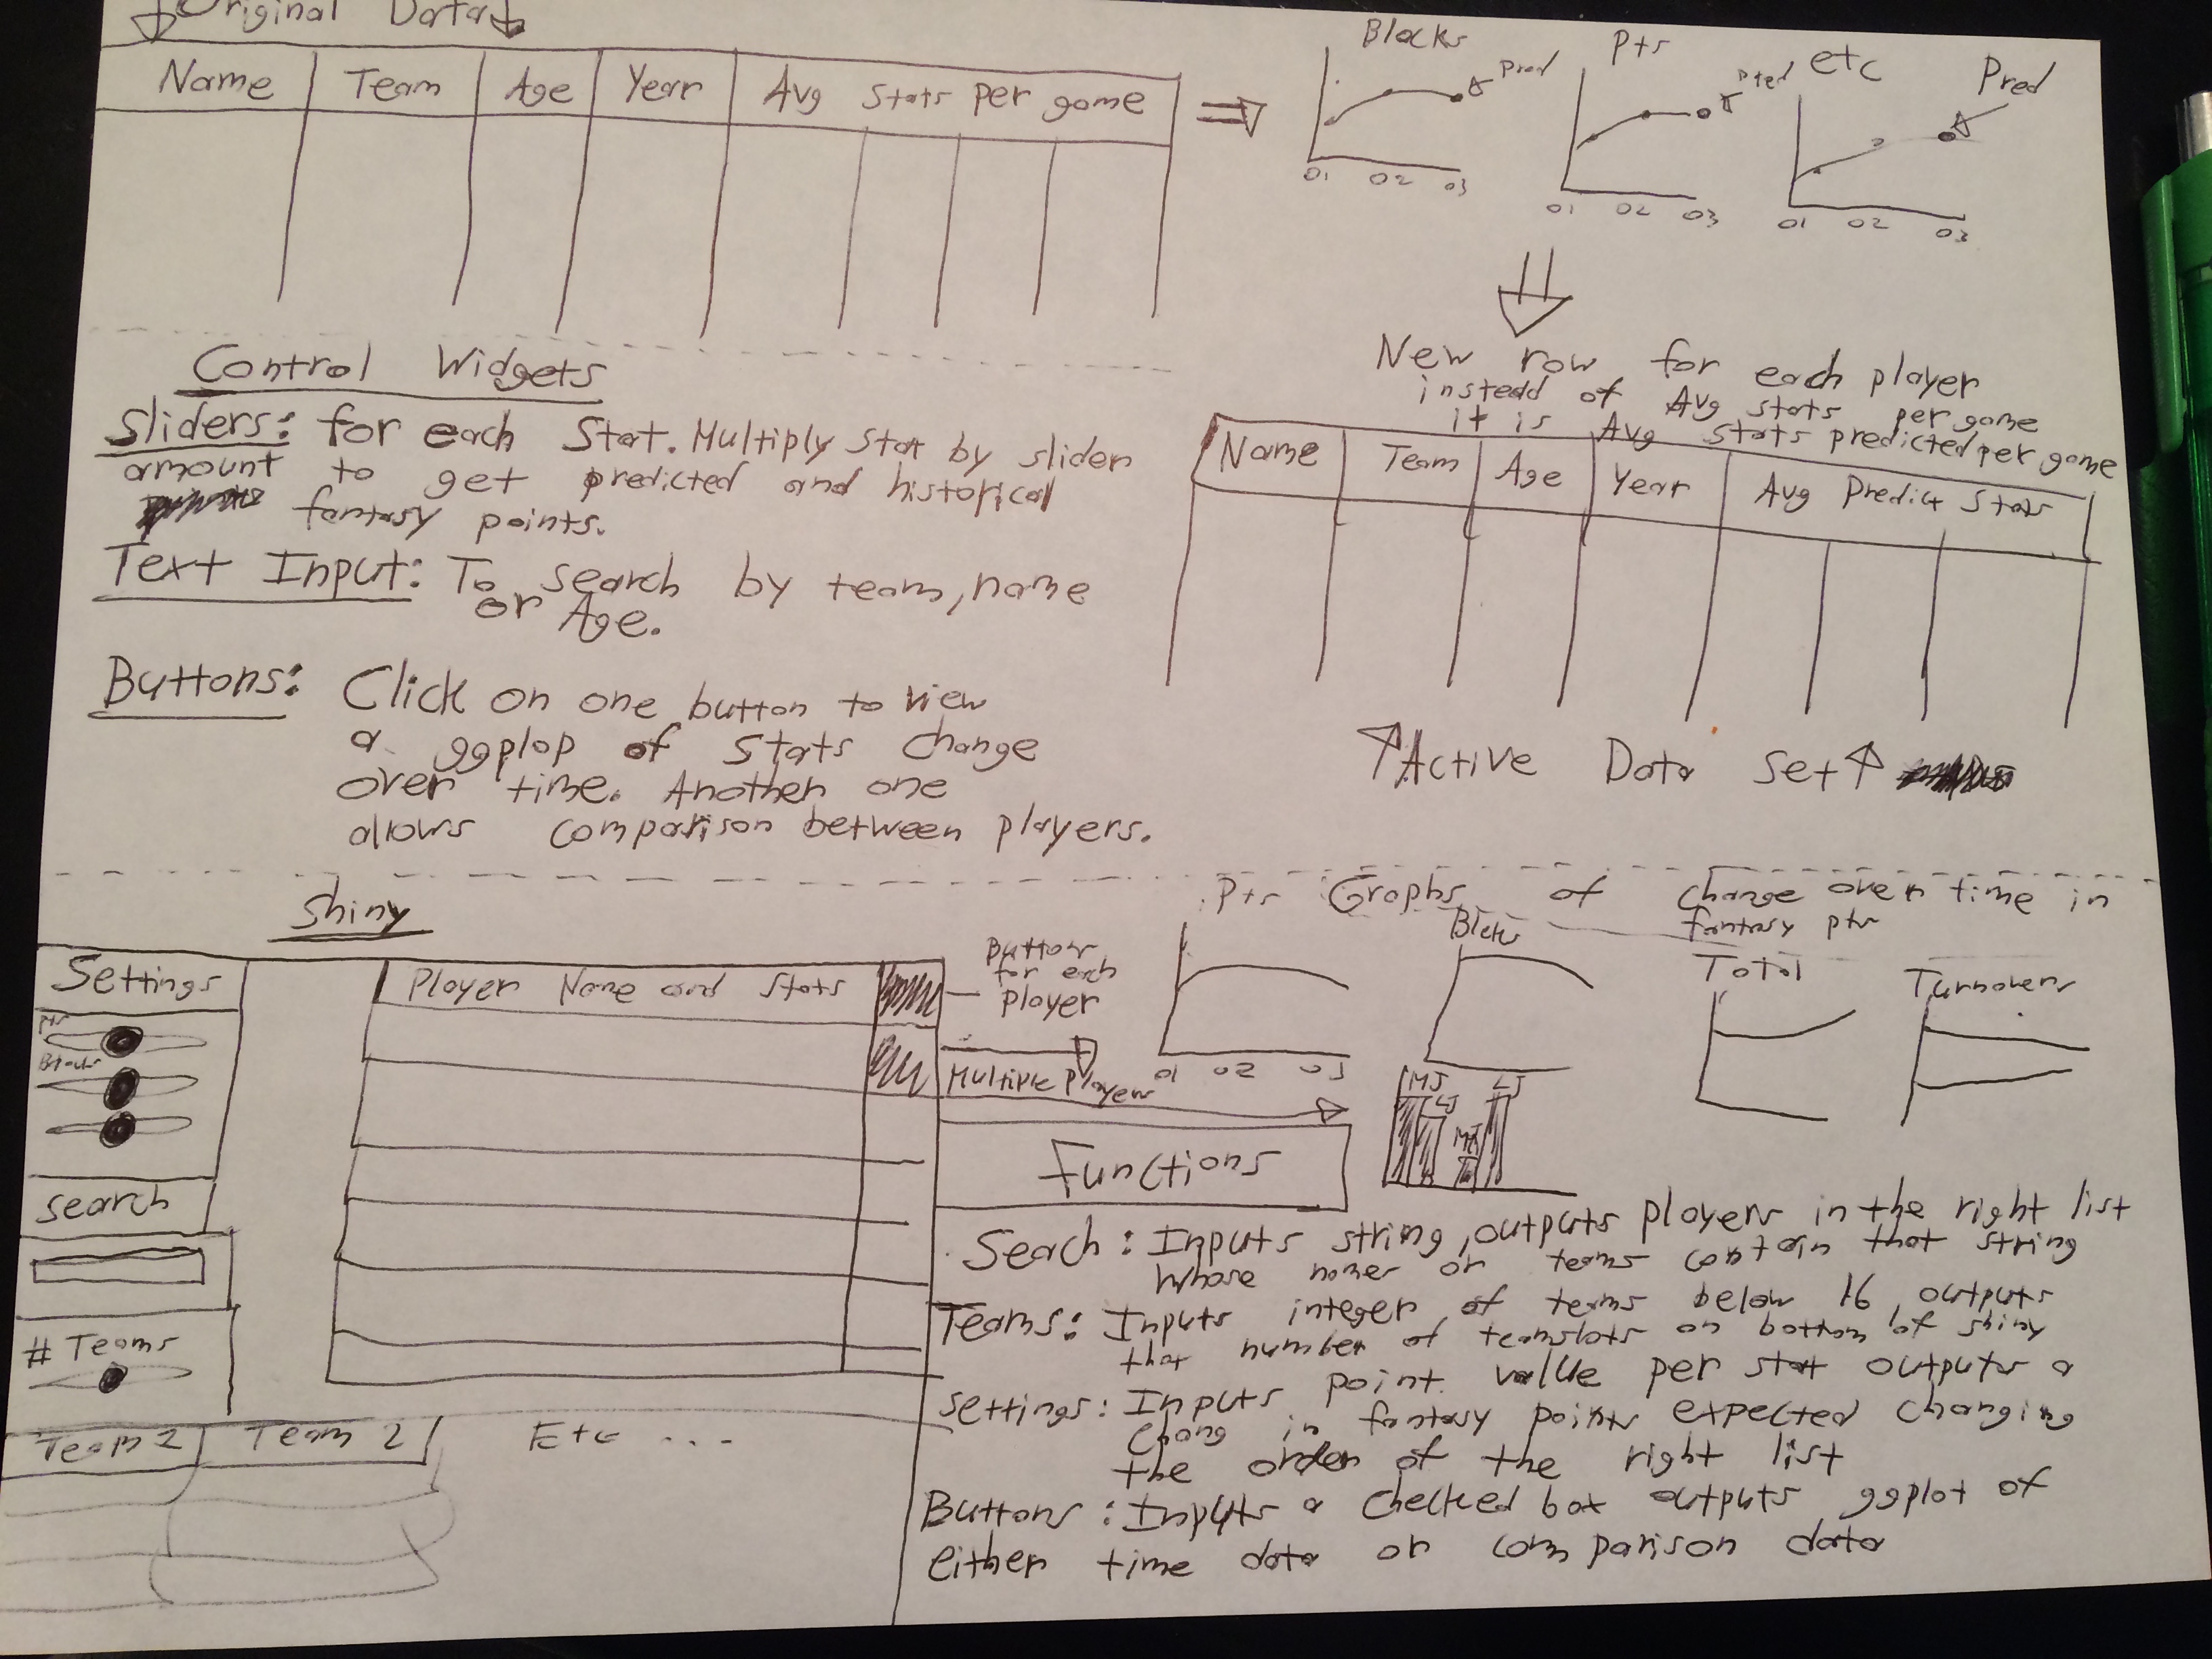 Original Data
Name Team Age Year Avg Stats per game
Blocks
Pred
01 02 03
Pts
Pred
01 02 03
etc
Pred
01 02 03
New row for each player
instead of Avg stats per game
it is Avg stats predicted per game
Name Team Age Year Avg Predict Stats
Active Data Set
Control Widgets
Sliders: for each Stat. Multiply Stat by slider
amount to get predicted and historical
fantasy points.
Text Input: To search by team, name
or Age.
Buttons: Click on one button to view
a ggplop of stats change
over time. Another one
allows comparison between players.
Shiny
Settings
Pts
Blocks
search
# Teams
Player Name and Stats
Button
for each
player
Multiple Players
Team 2 Team 2 Etc ...
Pts Graphs of change over time in
fantasy pts
01 02 03
Blcks
Total
Turnovers
MJ LJ
LJ
MJ
Functions
Search: Inputs string, outputs players in the right list
whose names or teams contain that string
Teams: Inputs integer of teams below 16 outputs
that number of teamslots on bottom of shiny
settings: Inputs point value per stat outputs a
chang in fantasy points expected changing
the order of the right list
Buttons: Inputs a checked box outputs ggplot of
either time data or comparison data